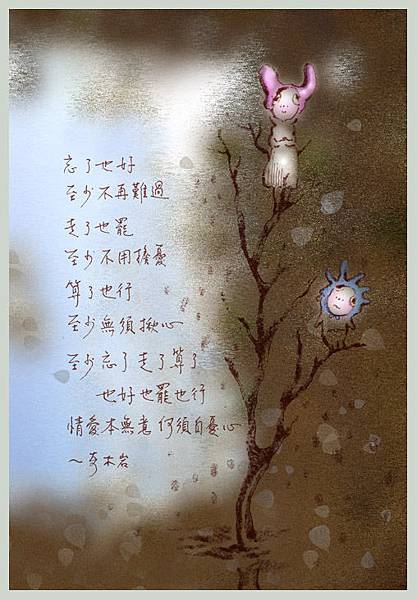 忘了也好
至少不再難過
走了也罷
至少不用擔憂
算了也行
至少無須揪心
至少忘了走了算了
也好也罷也行
情愛本無意何須自憂心
～奇木岩